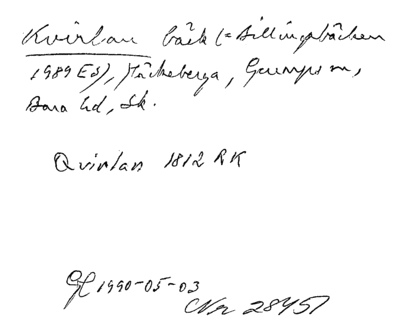 Kvirlan bäck (= Billingsbäcken
1989 EJ), Häckeberga, Genarps sn,
Bara hd, Sk.
Qvirlan 1812 RK
GH 1990-05-03
Nr 28451